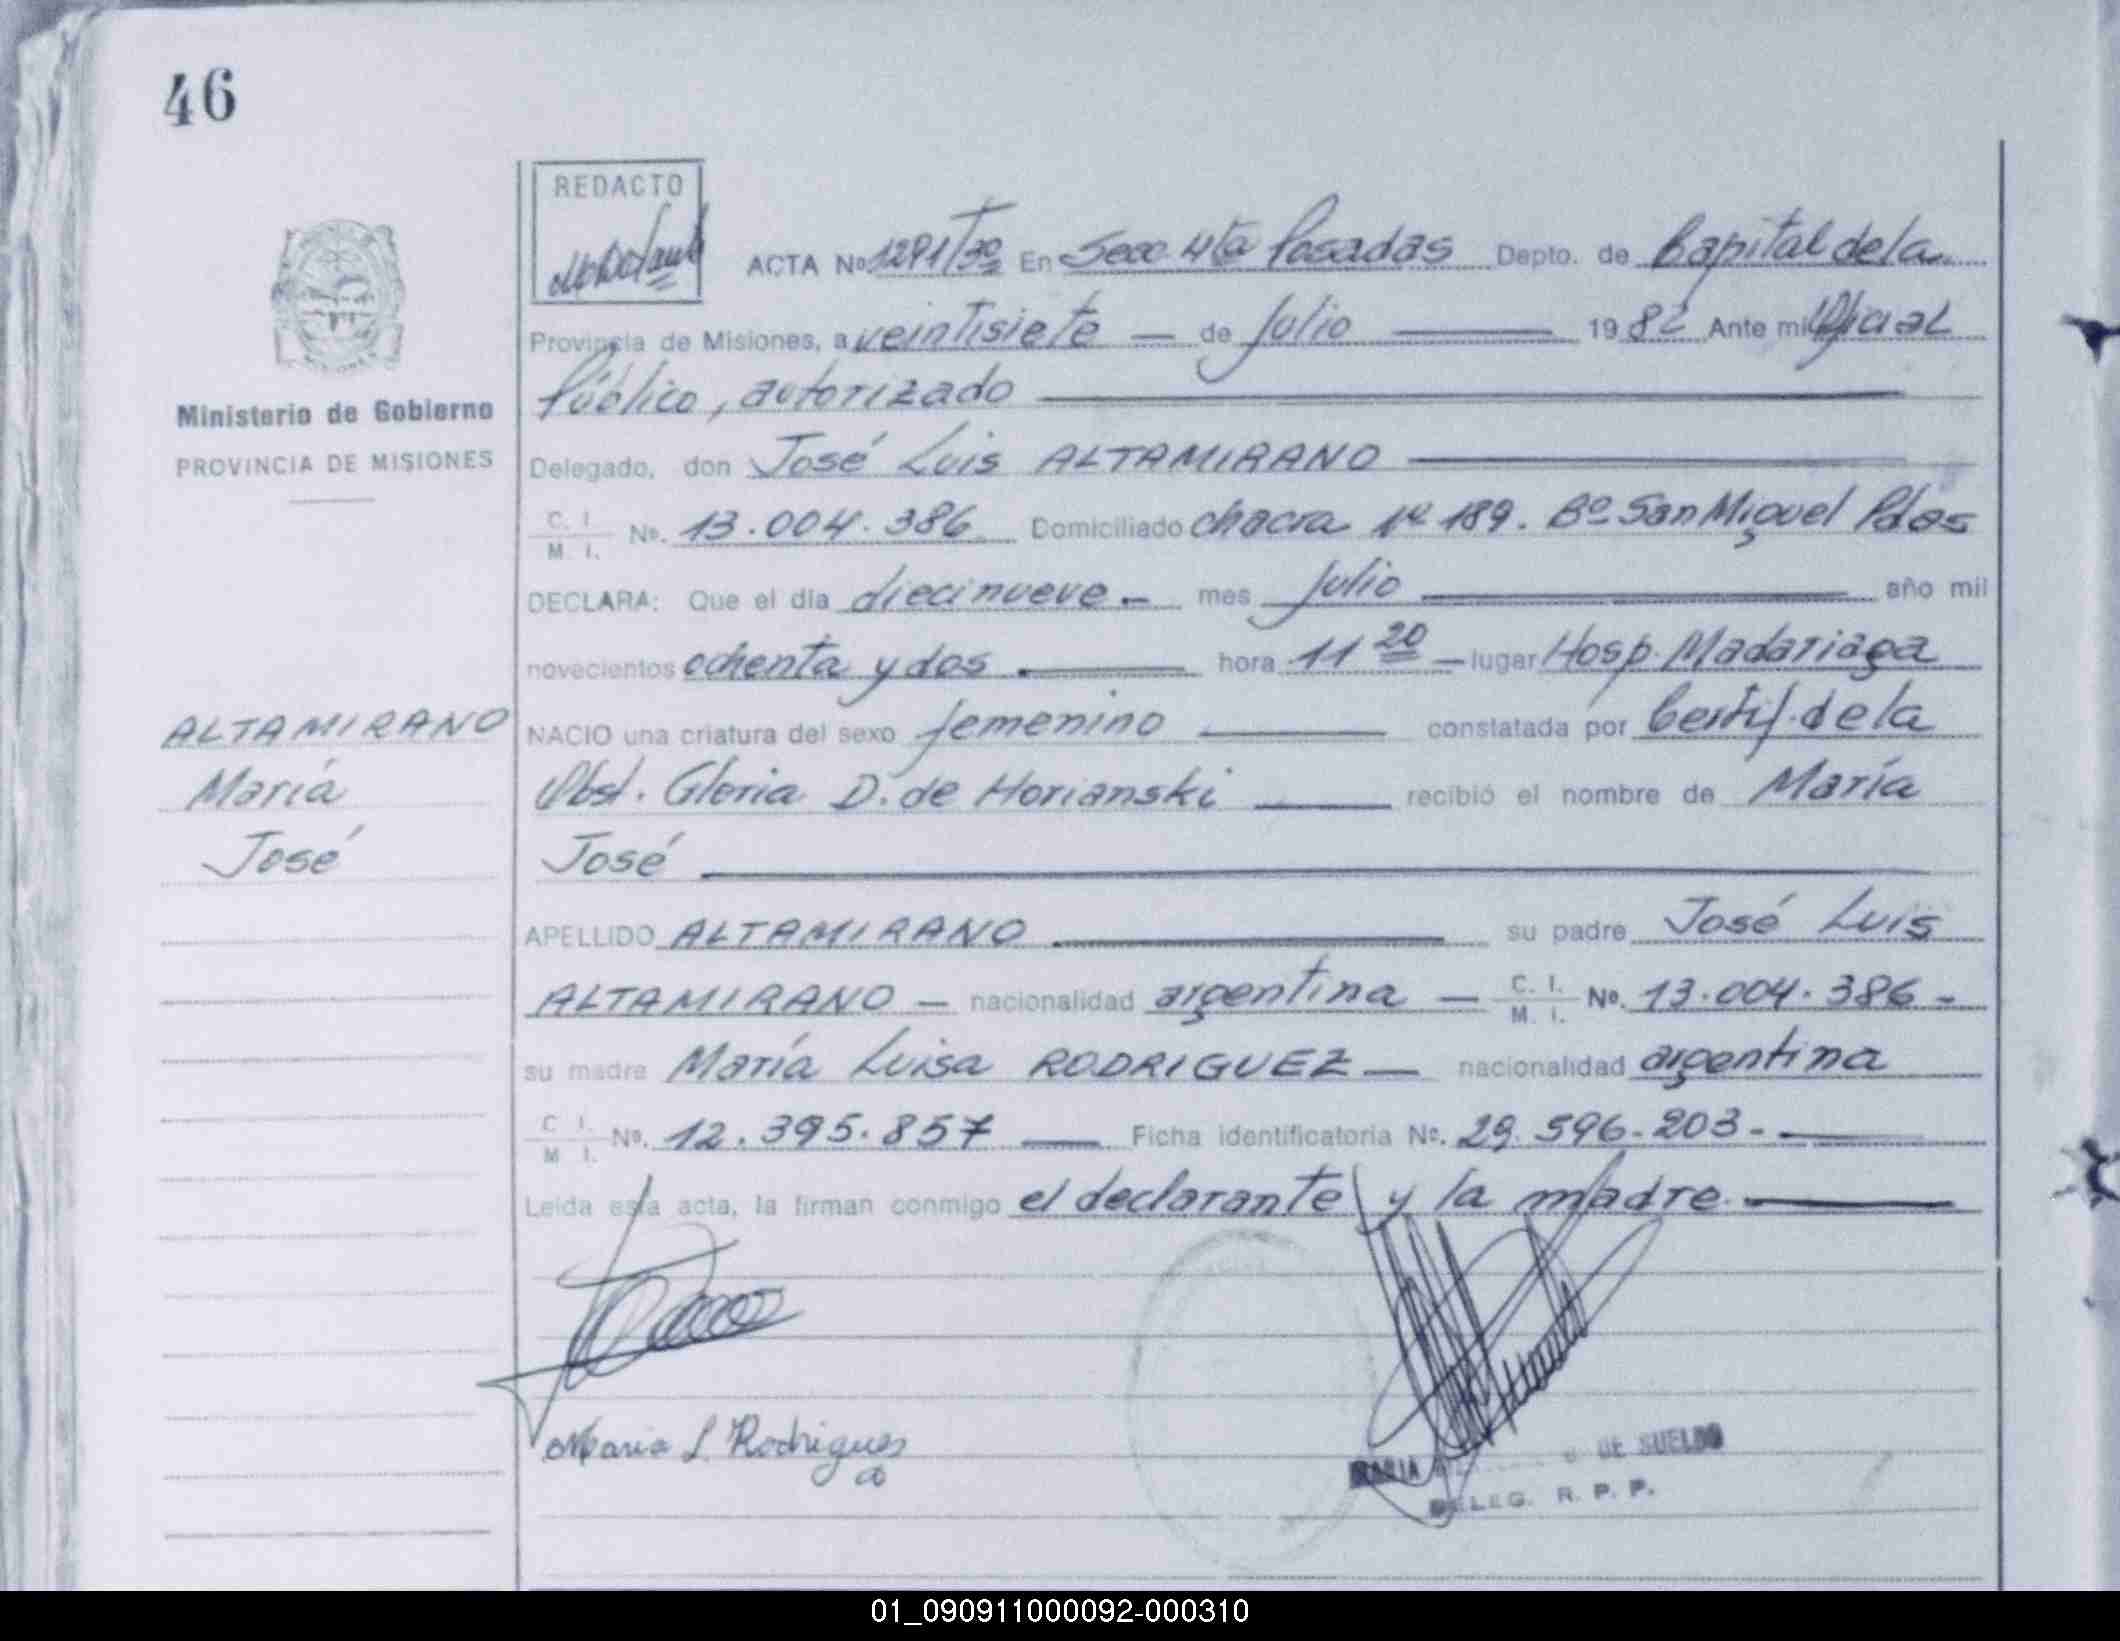 46
REDACTO
ACTA Nº 1291/3º En Secc. 4ta Posadas Depto. de Capital de la
Provincia de Misiones, a veintisiete — de Julio 1982 Ante mi Oficial
Público, autorizado
Ministerio de Gobierno
PROVINCIA DE MISIONES
Delegado, don José Luis ALTAMIRANO
C. I. M. I. Nº. 13.004.386 Domiciliado chacra Nº 189. Bº San Miguel Pdas
DECLARA: Que el día diecinueve — mes Julio año mil
novecientos ochenta y dos hora 11 20 — lugar Hosp. Madariaga
ALTAMIRANO
María
José
NACIO una criatura del sexo femenino constatada por Certif. de la
Obst. Gloria D. de Horianski recibió el nombre de María
José
APELLIDO ALTAMIRANO su padre José Luis
ALTAMIRANO — nacionalidad argentina — C. I. M. I. Nº. 13.004.386 -
su madre María Luisa RODRIGUEZ — nacionalidad argentina
C. I. M. I. Nº. 12.395.857 Ficha identificatoria Nº. 29.596.203 -
Leída esta acta, la firman conmigo el declarante y la madre.
Maria L. Rodrigues
MARIA DE SUELDO
DELEG. R. P. P.
01_090911000092-000310